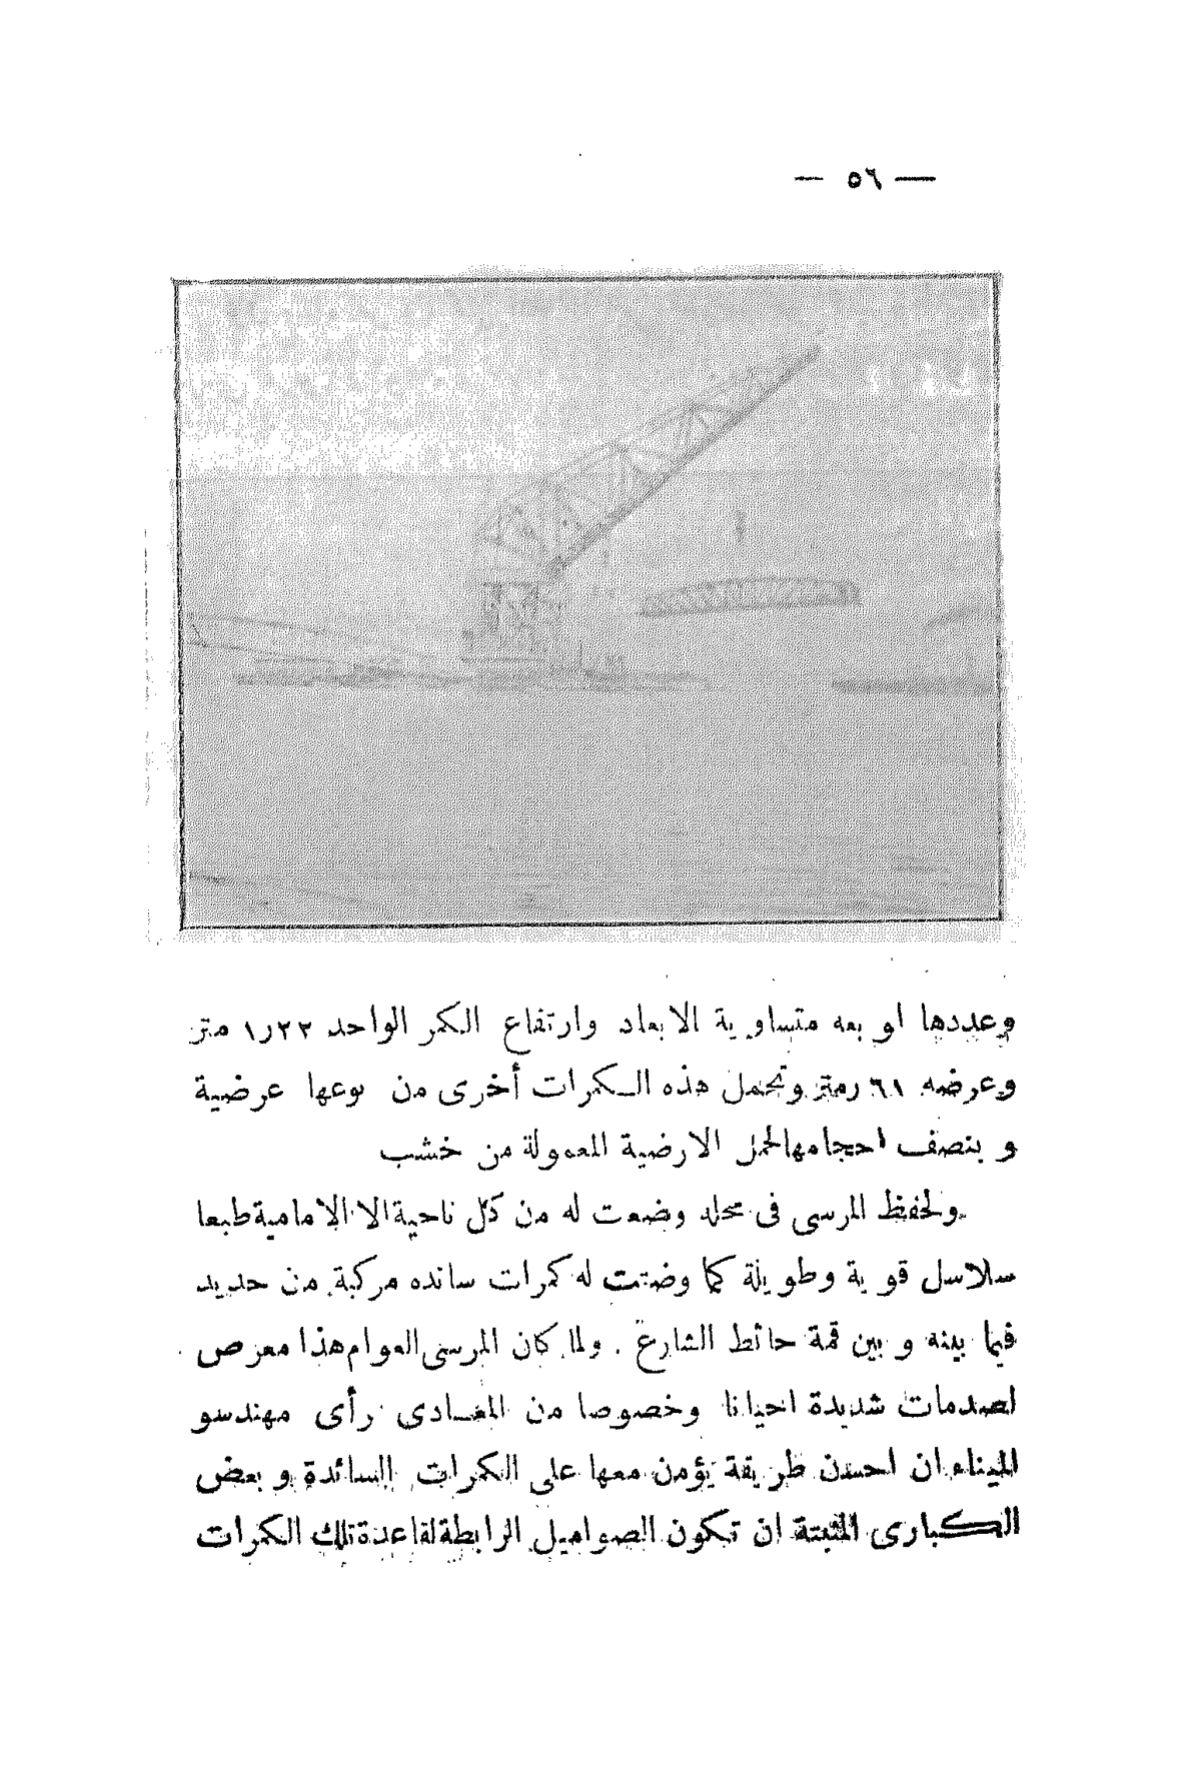 — ٥٦ —
وعددها اربعه متساوية الابعاد وارتفاع الكمر الواحد ١٫٢٢ متر
وعرضه ٦١ رمتر وتحمل هذه الكمرات أخرى من نوعها عرضية
و بنصف احجامها لحمل الارضية المعمولة من خشب
ولحفظ المرسى فى محله وضعت له من كل ناحية الا الامامية طبعا
سلاسل قوية وطويلة كما وضعت له كمرات سانده مركبة من حديد
فيما بينه و بين قمة حائط الشارع . ولما كان المرسى العوام هذا معرض
لصدمات شديدة احيانا وخصوصا من المعادى رأى مهندسو
الميناء ان احسن طريقة يؤمن معها على الكمرات الساندة و بعض
الكبارى المثبتة ان تكون الصواميل الرابطة لقاعدة تلك الكمرات